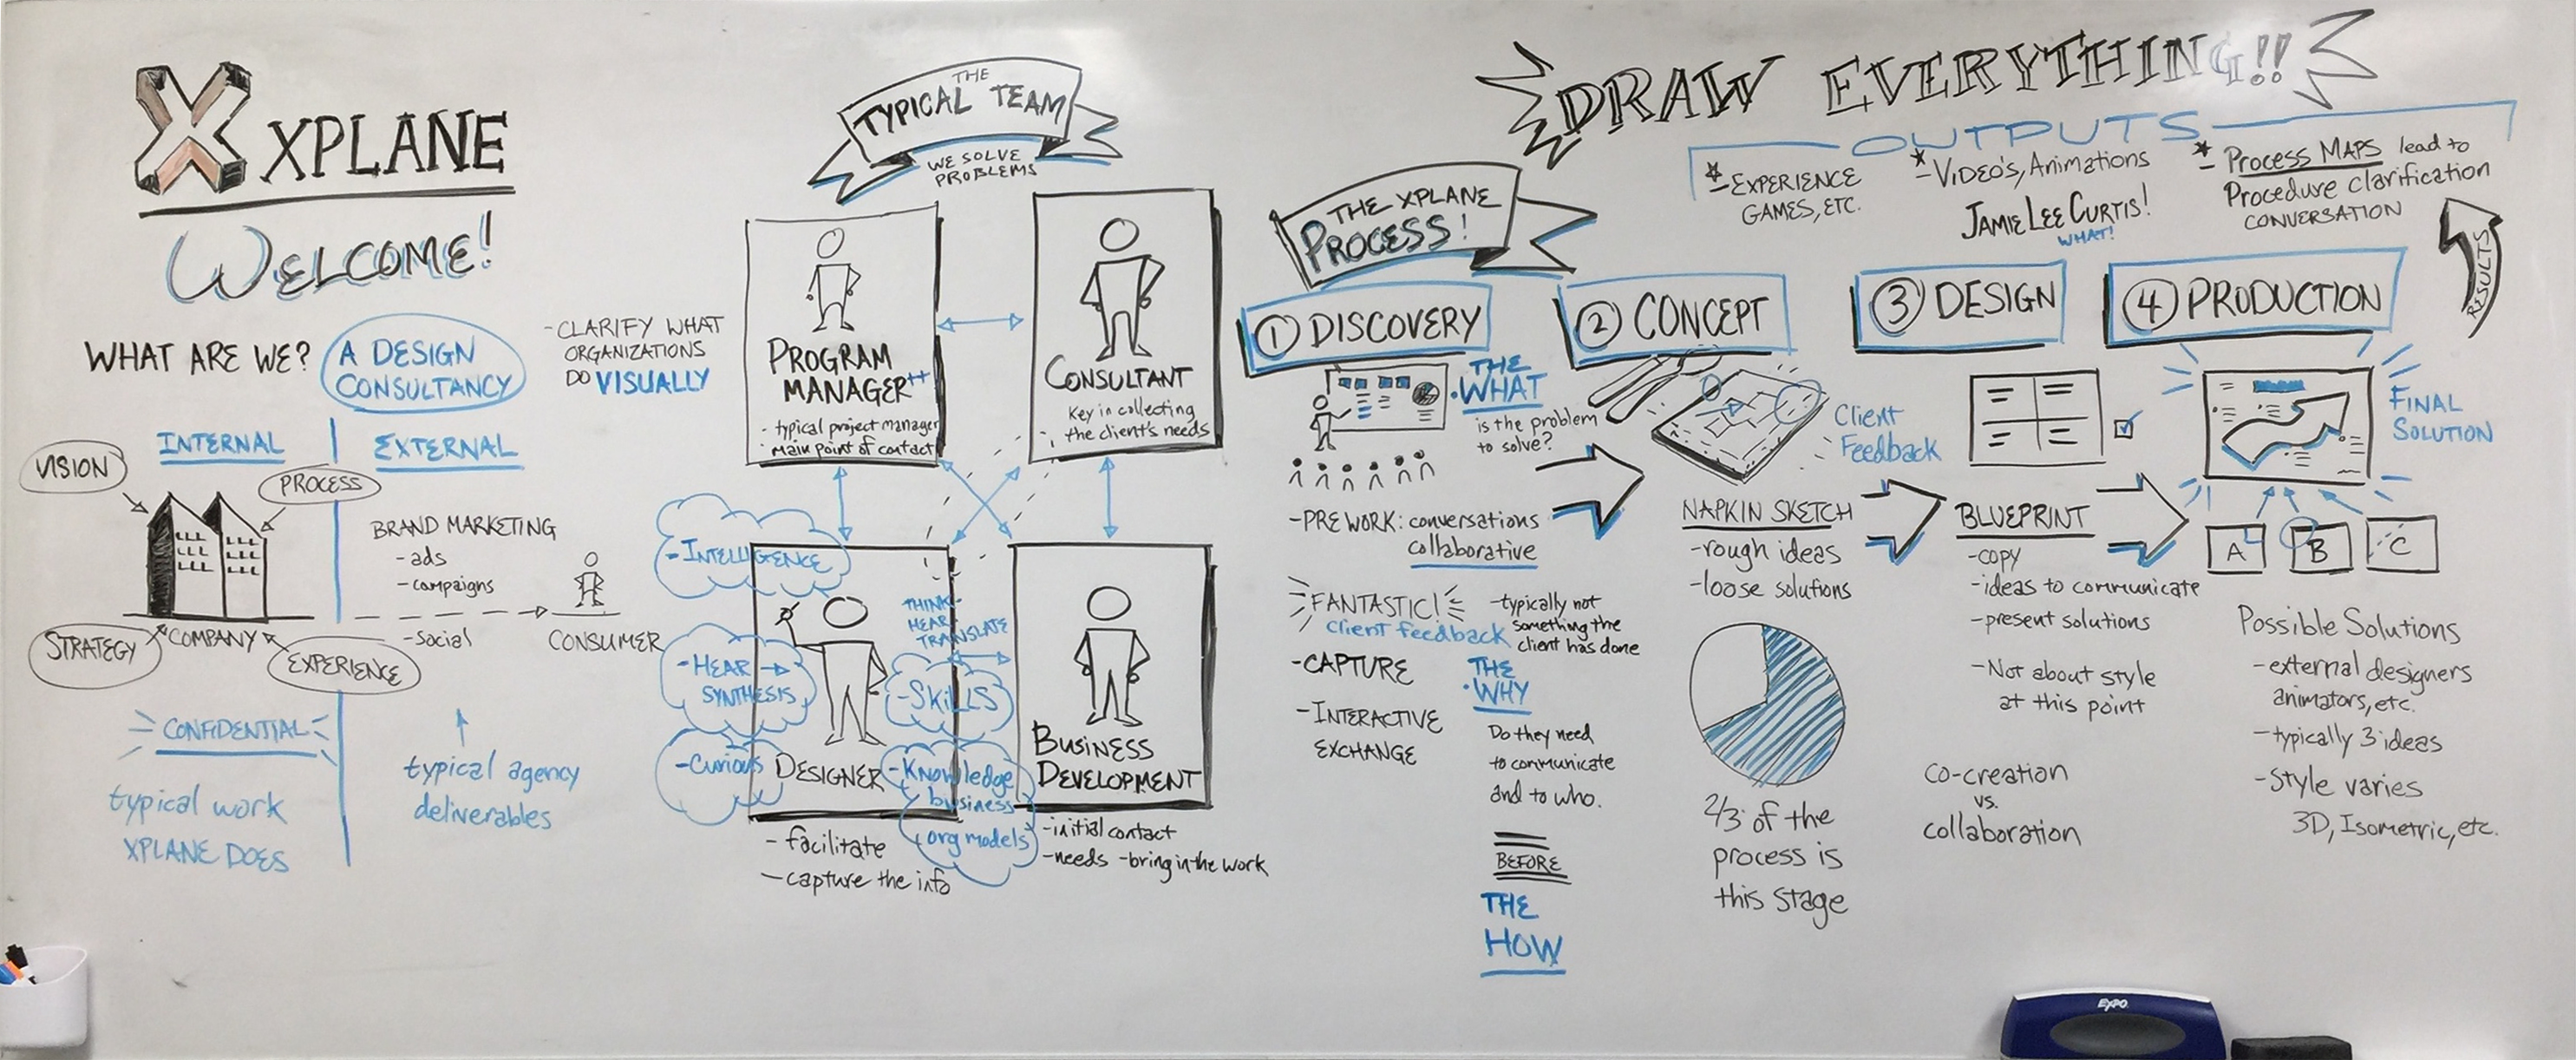 X XPLANE
WELCOME!
WHAT ARE WE?
A DESIGN
CONSULTANCY
-CLARIFY WHAT
ORGANIZATIONS
DO VISUALLY
INTERNAL
EXTERNAL
VISION
PROCESS
STRATEGY
COMPANY
EXPERIENCE
BRAND MARKETING
-ads
-campaigns
-social
CONSUMER
CONFIDENTIAL
typical work
XPLANE DOES
typical agency
deliverables
THE
TYPICAL TEAM
WE SOLVE
PROBLEMS
PROGRAM
MANAGER++
- typical project manager
· main point of contact
CONSULTANT
Key in collecting
the client's needs
-INTELLIGENCE
-HEAR →
SYNTHESIS
-Curious
THINK-
HEAR-
TRANSLATE
-SKILLS
-Knowledge
business
org models
DESIGNER
- facilitate
- capture the info
BUSINESS
DEVELOPMENT
-initial contact
-needs -bring in the work
DRAW EVERYTHING!!
OUTPUTS
* -EXPERIENCE
GAMES, ETC.
* -VIDEO'S, Animations
JAMIE LEE CURTIS!
WHAT!
* - PROCESS MAPS lead to
Procedure clarification
CONVERSATION
RESULTS
THE XPLANE
PROCESS!
1 DISCOVERY
THE
·WHAT
is the problem
to solve?
-PREWORK: conversations
collaborative
FANTASTIC!
Client feedback
-typically not
something the
client has done
-CAPTURE
-INTERACTIVE
EXCHANGE
THE
·WHY
Do they need
to communicate
and to who.
BEFORE
THE
HOW
2 CONCEPT
Client
Feedback
NAPKIN SKETCH
-rough ideas
-loose solutions
2/3 of the
process is
this stage
3 DESIGN
BLUEPRINT
-copy
-ideas to communicate
-present solutions
-Not about style
at this point
Co-creation
vs.
collaboration
4 PRODUCTION
FINAL
SOLUTION
A
B
C
Possible Solutions
-external designers
animators, etc.
-typically 3 ideas
-Style varies
3D, Isometric, etc.
EXPO